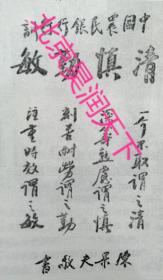 中國農民銀行行訓
清慎勤敏
一介不取謂之清
深謀熟慮謂之慎
刻苦耐勞謂之勤
注重時效謂之敏
陳果夫敬書
北京晨润天下